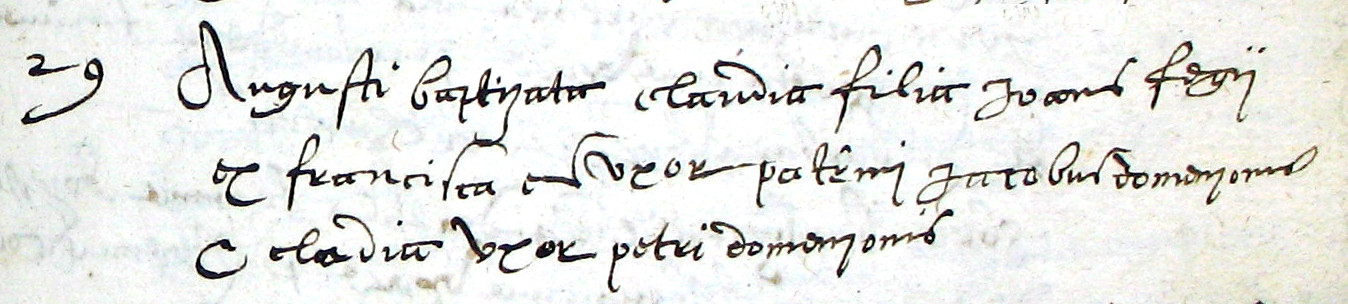 29 Augusti baptizata claudia filia Joanis fegij
ex francisca eius uxor patrini Jacobus domenionis
& cladia uxor petri domenionis